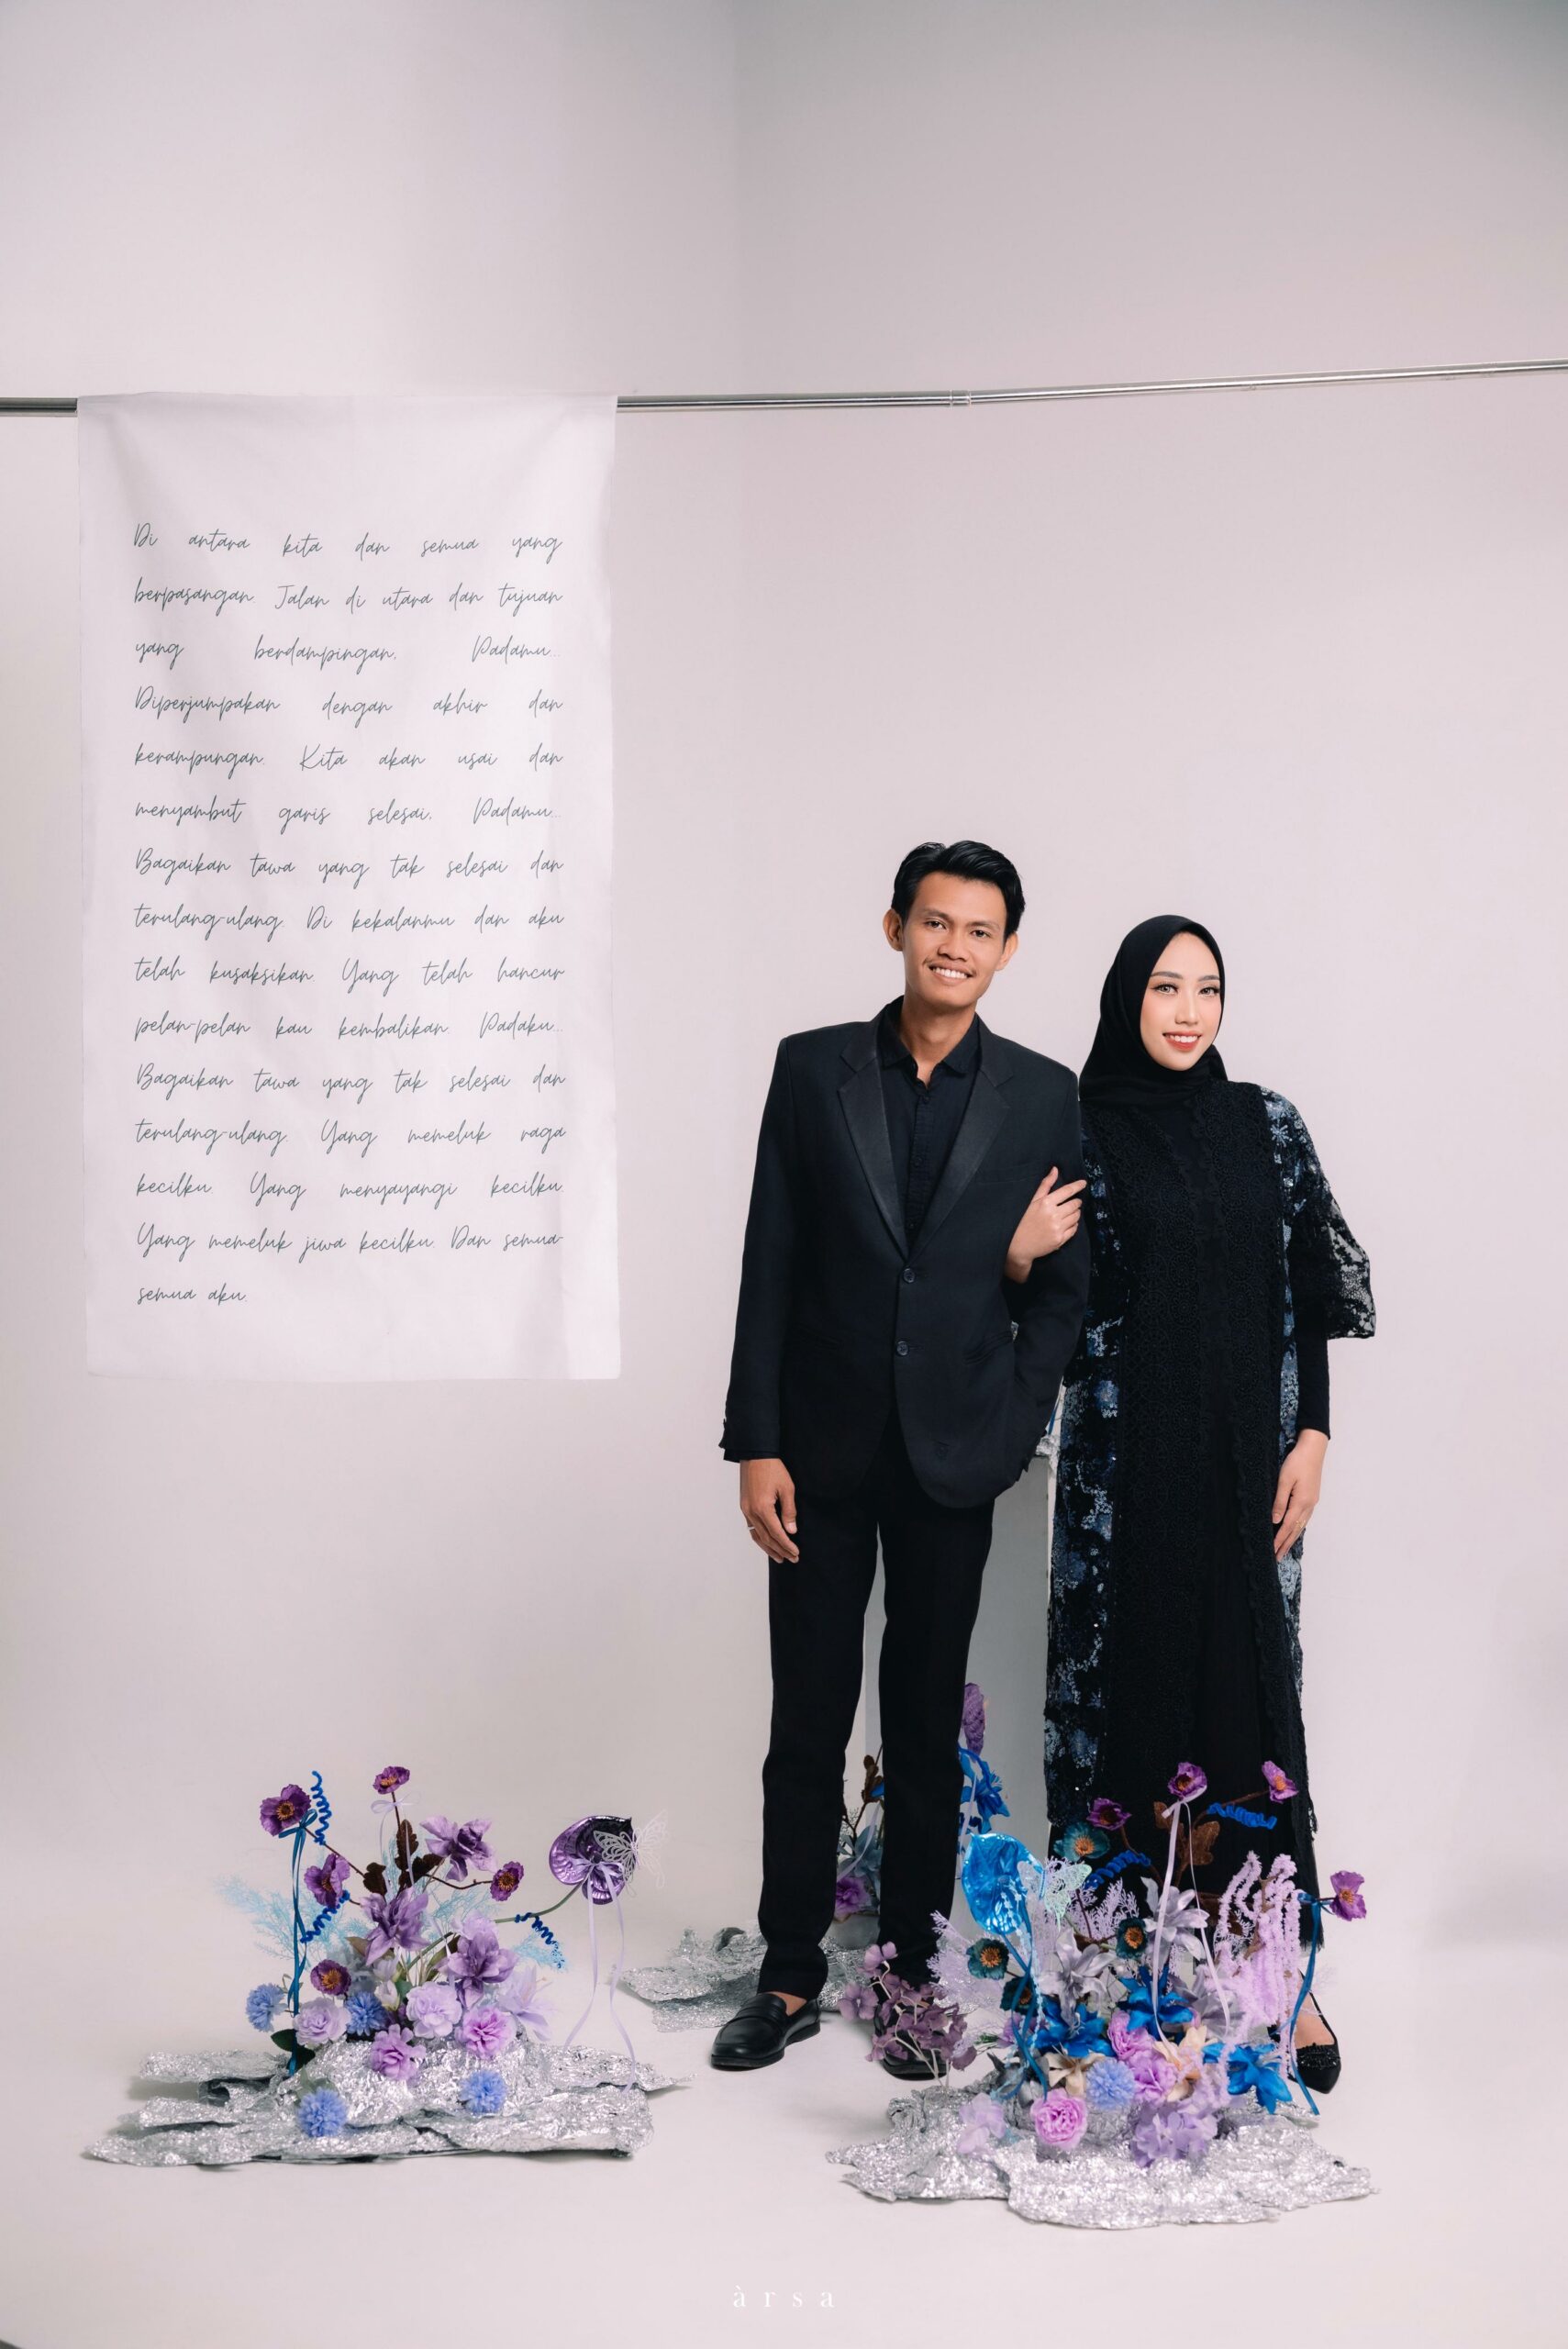 Di antara kita dan semua yang
berpasangan. Jalan di utara dan tujuan
yang berdampingan. Padamu...
Diperjumpakan dengan akhir dan
kerampungan. Kita akan usai dan
menyambut garis selesai. Padamu...
Bagaikan tawa yang tak selesai dan
terulang-ulang. Di kekalanmu dan aku
telah kusaksikan. Yang telah hancur
pelan-pelan kau kembalikan. Padaku...
Bagaikan tawa yang tak selesai dan
terulang-ulang. Yang memeluk raga
kecilku. Yang menyayangi kecilku.
Yang memeluk jiwa kecilku. Dan semua-
semua aku.
àrsa